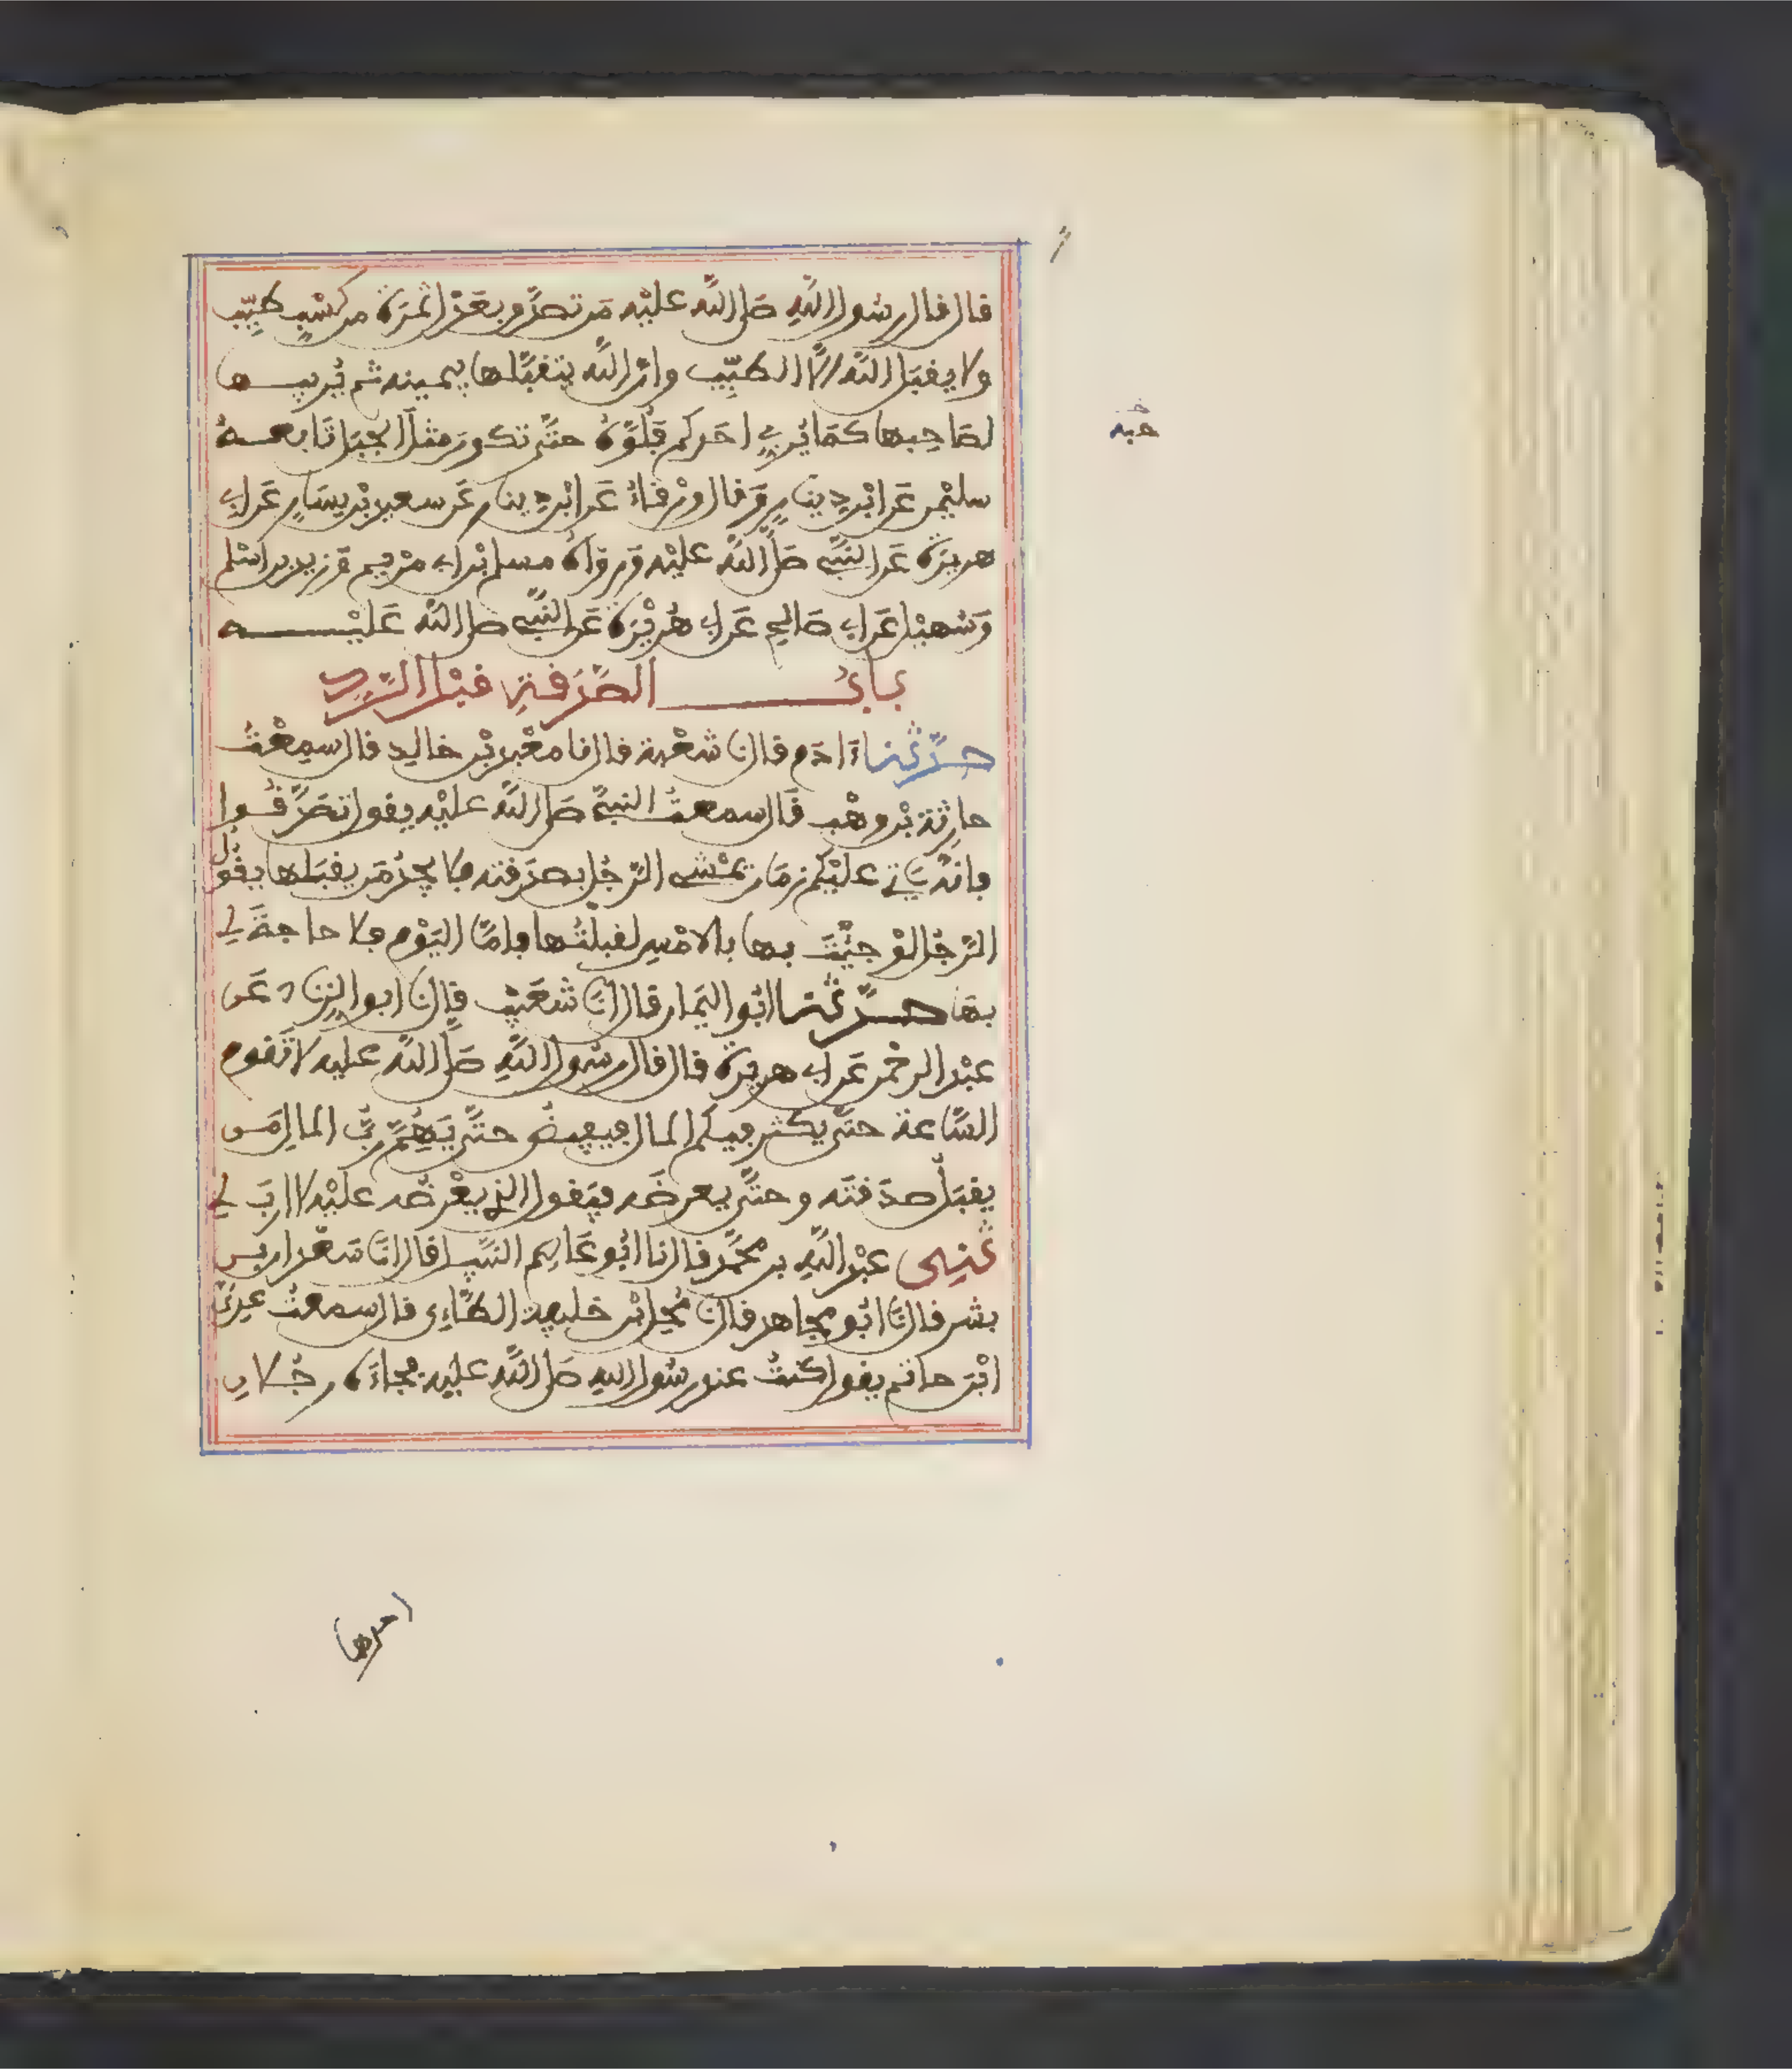 قال قال رسول اللهِ صَلى اللّه عليْه مَن تصدَّق بعَدْل تمْرَة من كسْبٍ طيّبٍ
ولا يقبَل اللّه الاَّ الطيِّب وانّ اللّه يتقبَّلها بيمينه ثم يُربيها
لصَاحِبها كمَا يُربي احَدكم فَلُوَّهُ حتَّى تكون مثلَ الجبَل تَابعهُ
سليْمن عَن ابْن دِينارٍ وَقال ورْقاءُ عَن ابْن دِينار عَن سعيد بْن يسَارٍ عَن ابي
هريرَة عَن النبَّي صَلَّى اللّه عليْه وَرَوَاهُ مسلم ابْن ابي مرْيم وَزيد بن اسْلم
وَسُهيْل عَن ابي صَالحٍ عَن ابي هُريْرَة عَن النبَّي صلى اللّه عَليْه
بابُ الصَّدَقةِ قبْل الرَّدِ
حدَّثنا ءَادَم قال نا شعْبة قال نا معْبد بْن خالِدٍ قال سمِعْتُ
حارِثة بْن وهْب قَال سمعتُ النبيَّ صَلى اللّه عليْه يقول تصَدَّقُوا
فانّه يَاتي عليْكم زمَان يمْشي الرّجُل بصدَقته فلا يجدُ مَن يقبَلها يقُولُ
الرّجُل لوْ جئْتَ بها بالامْسِ لقبلْتُها فامَّا اليَوْم فلا حاجةَ لي
بهَا حدَّثنا ابُو اليَمان قال انَا شعَيْب قال نا ابو الزناد عَن
عبْد الرحْمن عَن ابي هريرَة قال قال رسُول اللَّهِ صَلَّى اللّه عليه لا تَقوم
السَّاعة حتَّى يكثر فيكم المال فيفيضُ حتَّى يُهِمَّ ربَّ المال مَن
يقبَلُ صدَقتَه وحتَّى يعرضَه فيَقول الذي يعْرضُه عليْه لا ارَبَ لي
ثنِي عبْد اللَّهِ بن محمَّد قال نا ابُو عَاصِم النبَّيل قال انَا سَعْدَان بن
بشر قال نَا ابُو مجاهد قال نا مُحِل ابْن خليفة الطَّاءِي قال سمعتُ عدِيَّ
ابْن حاتم يقول كنتُ عند رسُول اللهِ صَلى اللَّه عليه فجاءَهُ رجُلان
احدها